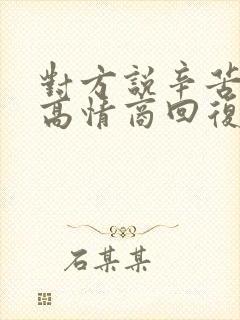 對方說辛苦
高情商回復
石某某